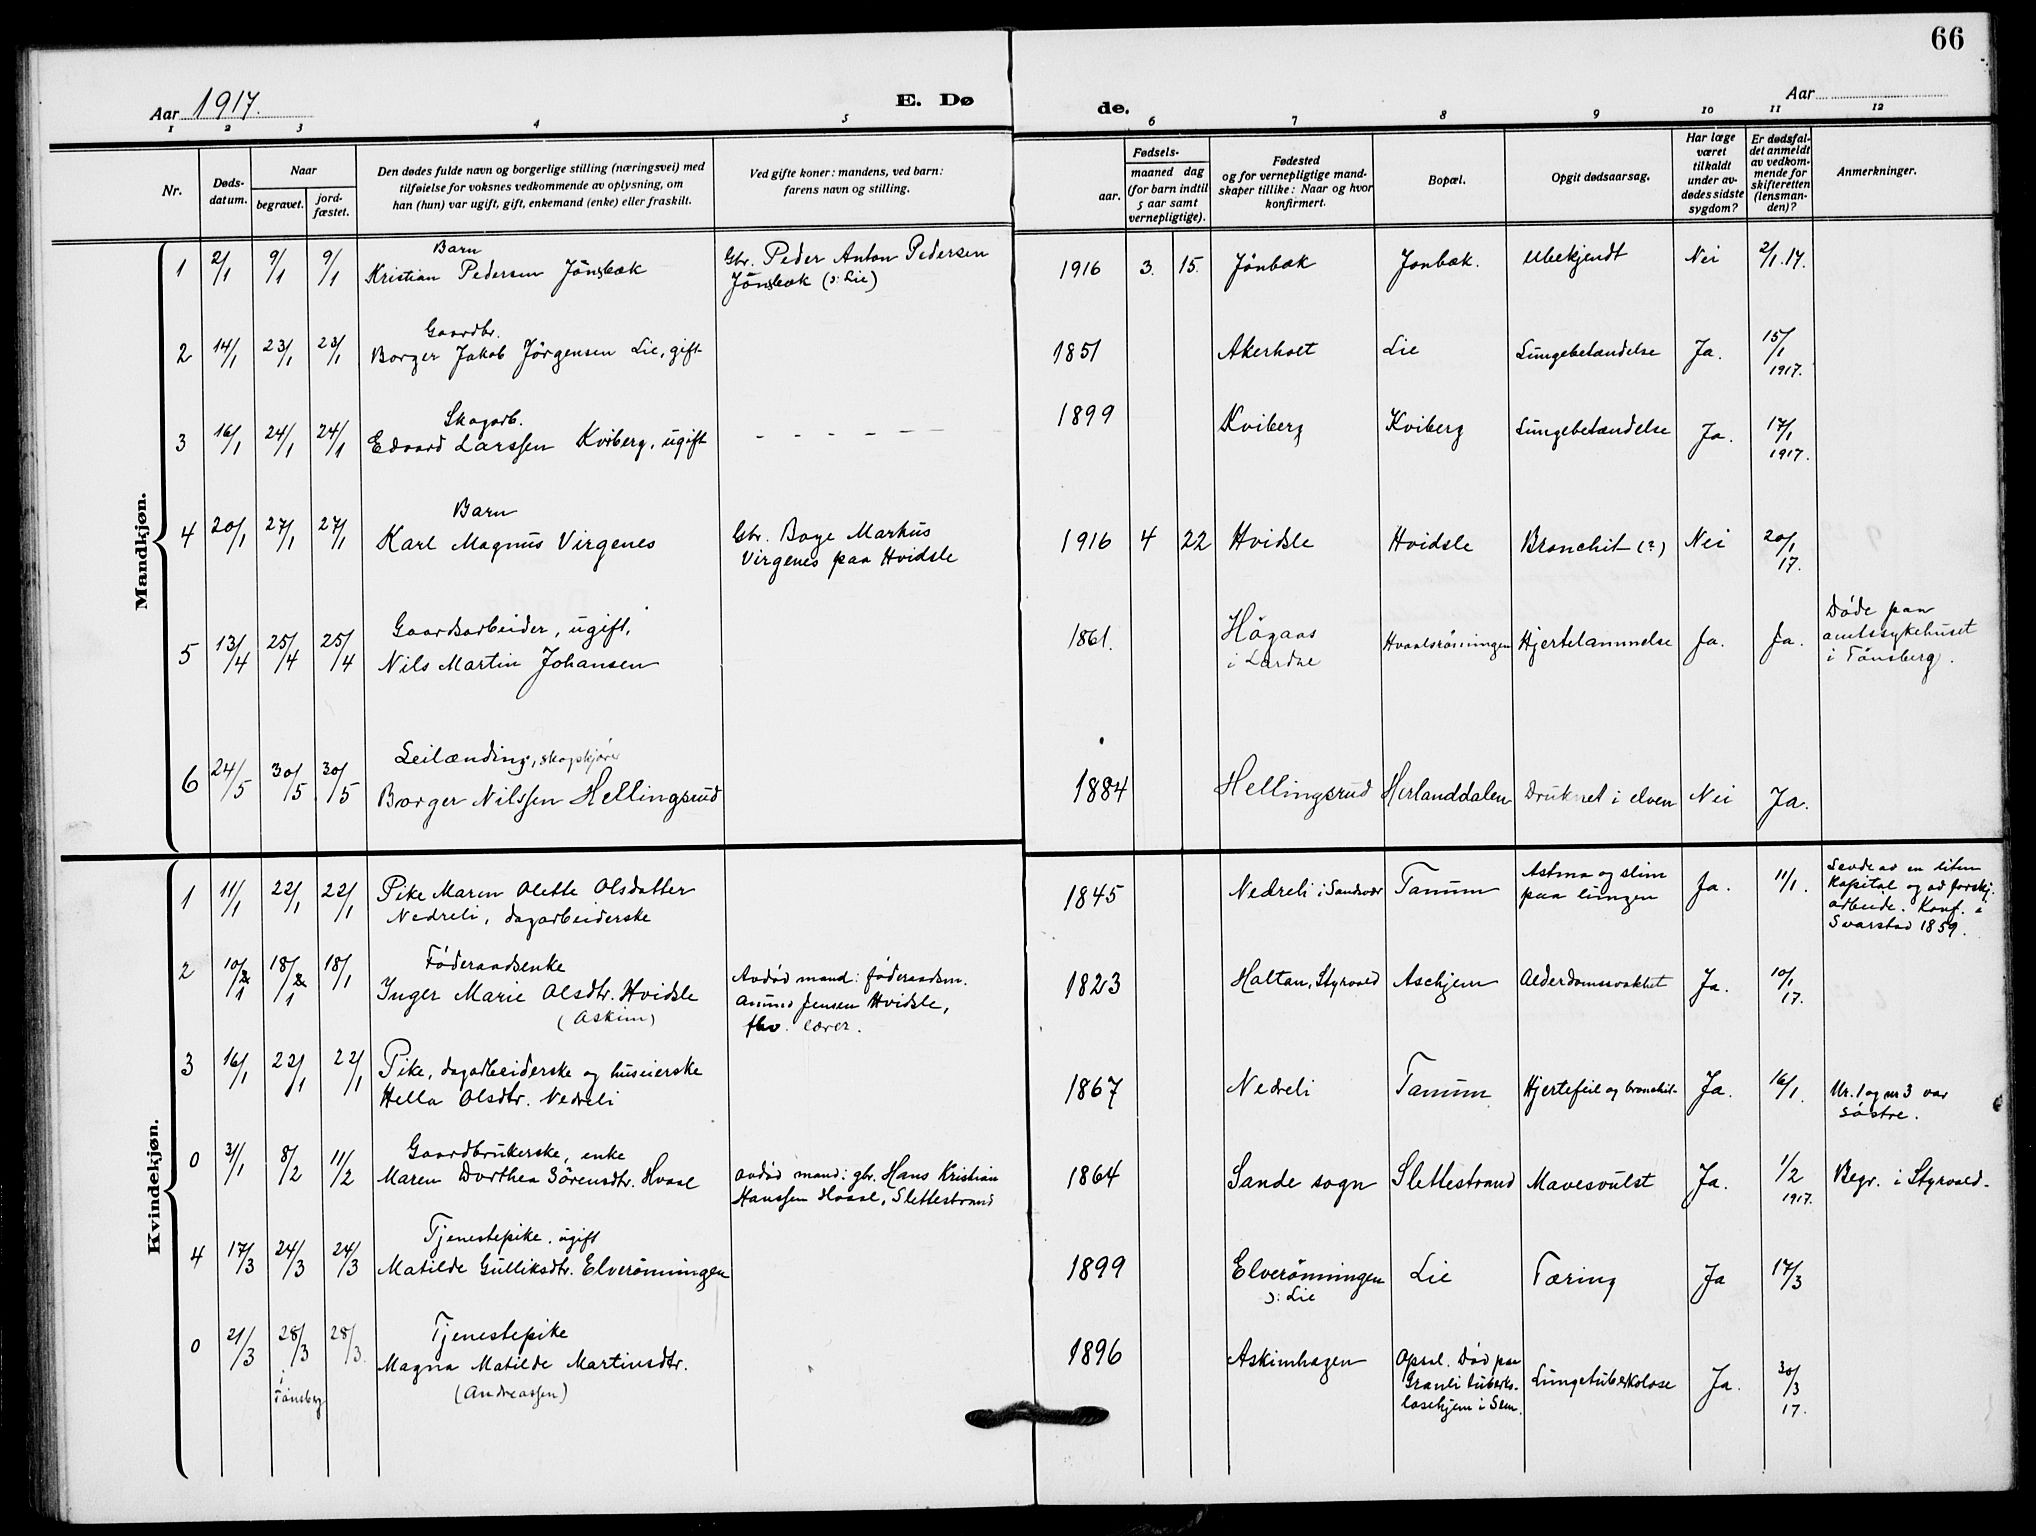 66
Aar 1917.
E. Dø
de.
Aar
1 2 3 4 5 6 7 8 9 10 11 12
Nr.
Døds-
datum.
Naar
begravet.
jord-
fæstet.
Den dødes fulde navn og borgerlige stilling (næringsvei) med
tilføielse for voksnes vedkommende av oplysning, om
han (hun) var ugift, gift, enkemand (enke) eller fraskilt.
Ved gifte koner: mandens, ved barn:
farens navn og stilling.
Fødsels-
aar.
maaned dag
(for barn indtil
5 aar samt
vernepligtige).
Fødested
og for vernepligtige mand-
skaper tillike: Naar og hvor
konfirmert.
Bopæl.
Opgit dødsaarsag.
Har læge
været
tilkaldt
under av-
dødes sidste
sygdom?
Er dødsfal-
det anmeldt
av vedkom-
mende for
skifteretten
(lensman-
den)?
Anmerkninger.
Mandkjøn.
Barn
1 2/1 9/1 9/1 Kristian Pedersen Jönsbæk
Gbr. Peder Anton Pedersen
Jönsbæk (ɔ: Lie)
1916 3. 15. Jönbæk Jonbæk. Ubekjendt Nei 2/1.17.
Gaardbr.
2 14/1 23/1 23/1 Borger Jakob Jörgensen Lie, gift
1851 Akerholt Lie Lungebetændelse Ja. 15/1
1917.
Skogarb.
3 16/1 24/1 24/1 Edvard Larssen Kviberg, ugift - - - - - -
1899 Kviberg Kviberg Lungebetændelse Ja. 17/1
1917.
Barn
4 20/1 27/1 27/1 Karl Magnus Virgenes
Gbr. Boye Markus
Virgenes paa Hvidsle
1916 4 22 Hvidsle Hvidsle Bronchit (?) Nei 20/1
17.
Gaardsarbeider, ugift,
5 13/4 25/4 25/4 Nils Martin Johansen
1861. Högaas
i Lardal
Hvaalsrönningen Hjertelammelse Ja. Ja.
Döde paa
amtssykehuset
i Tönsberg.
Leilænding, skogskjörer
6 24/5 30/5 30/5 Borger Nilssen Hellingsrud
1884 Hellingsrud Herlanddalen Druknet i elven Nei Ja.
Kvindekjøn.
1 11/1 22/1 22/1 Pike Maren Olette Olsdatter
Nedreli, dagarbeiderske
1845 Nedreli i Sandsvær Tanum
Astma og slim
paa lungen
Ja. 11/1.
Levde av en liten
kapital og av forskj.
arbeide. Konf. i
Svarstad 1859.
Föderaadsenke
2 10/1 18/1 18/1 Inger Marie Olsdtr. Hvidsle
(Askim)
Avdöd mand: föderaadsm.
Anund Jensen Hvidsle,
fhv. lærer.
1823 Haltan, Styrvold Askjem Alderdomssvakhet Ja. 10/1
17.
3 16/1 22/1 22/1 Pike, dagarbeiderske og huseierske
Hella Olsdtr. Nedreli
1867 Nedreli Tanum Hjertefeil og bronchit Ja. 16/1.
Nr. 1 og nr 3 var
söstre.
Gaardbrukerske, enke
0 31/1 8/2 11/2 Maren Dorthea Sörensdtr. Hvaal
Avdöd mand: gbr. Hans Kristian
Hanssen Hvaal, Slettestrand
1864 Sande sogn Slettestrand Mavesvulst Ja. 1/2
1917.
Begr. i Styrvold.
Tjenestepike, ugift
4 17/3 24/3 24/3 Matilde Gulliksdtr. Elverönningen
1899 Elverönningen
ɔ: Lie
Lie Tæring Ja 17/3
Tjenestepike
0 21/3 28/3 28/3. Magna Matilde Martinsdtr.
(Andreassen)
i
Tönsberg
1896 Askimhagen
Opsal. Död paa
Granli tuberku-
losehjem i Sem.
Lungetuberkolose Ja. 30/3
17.